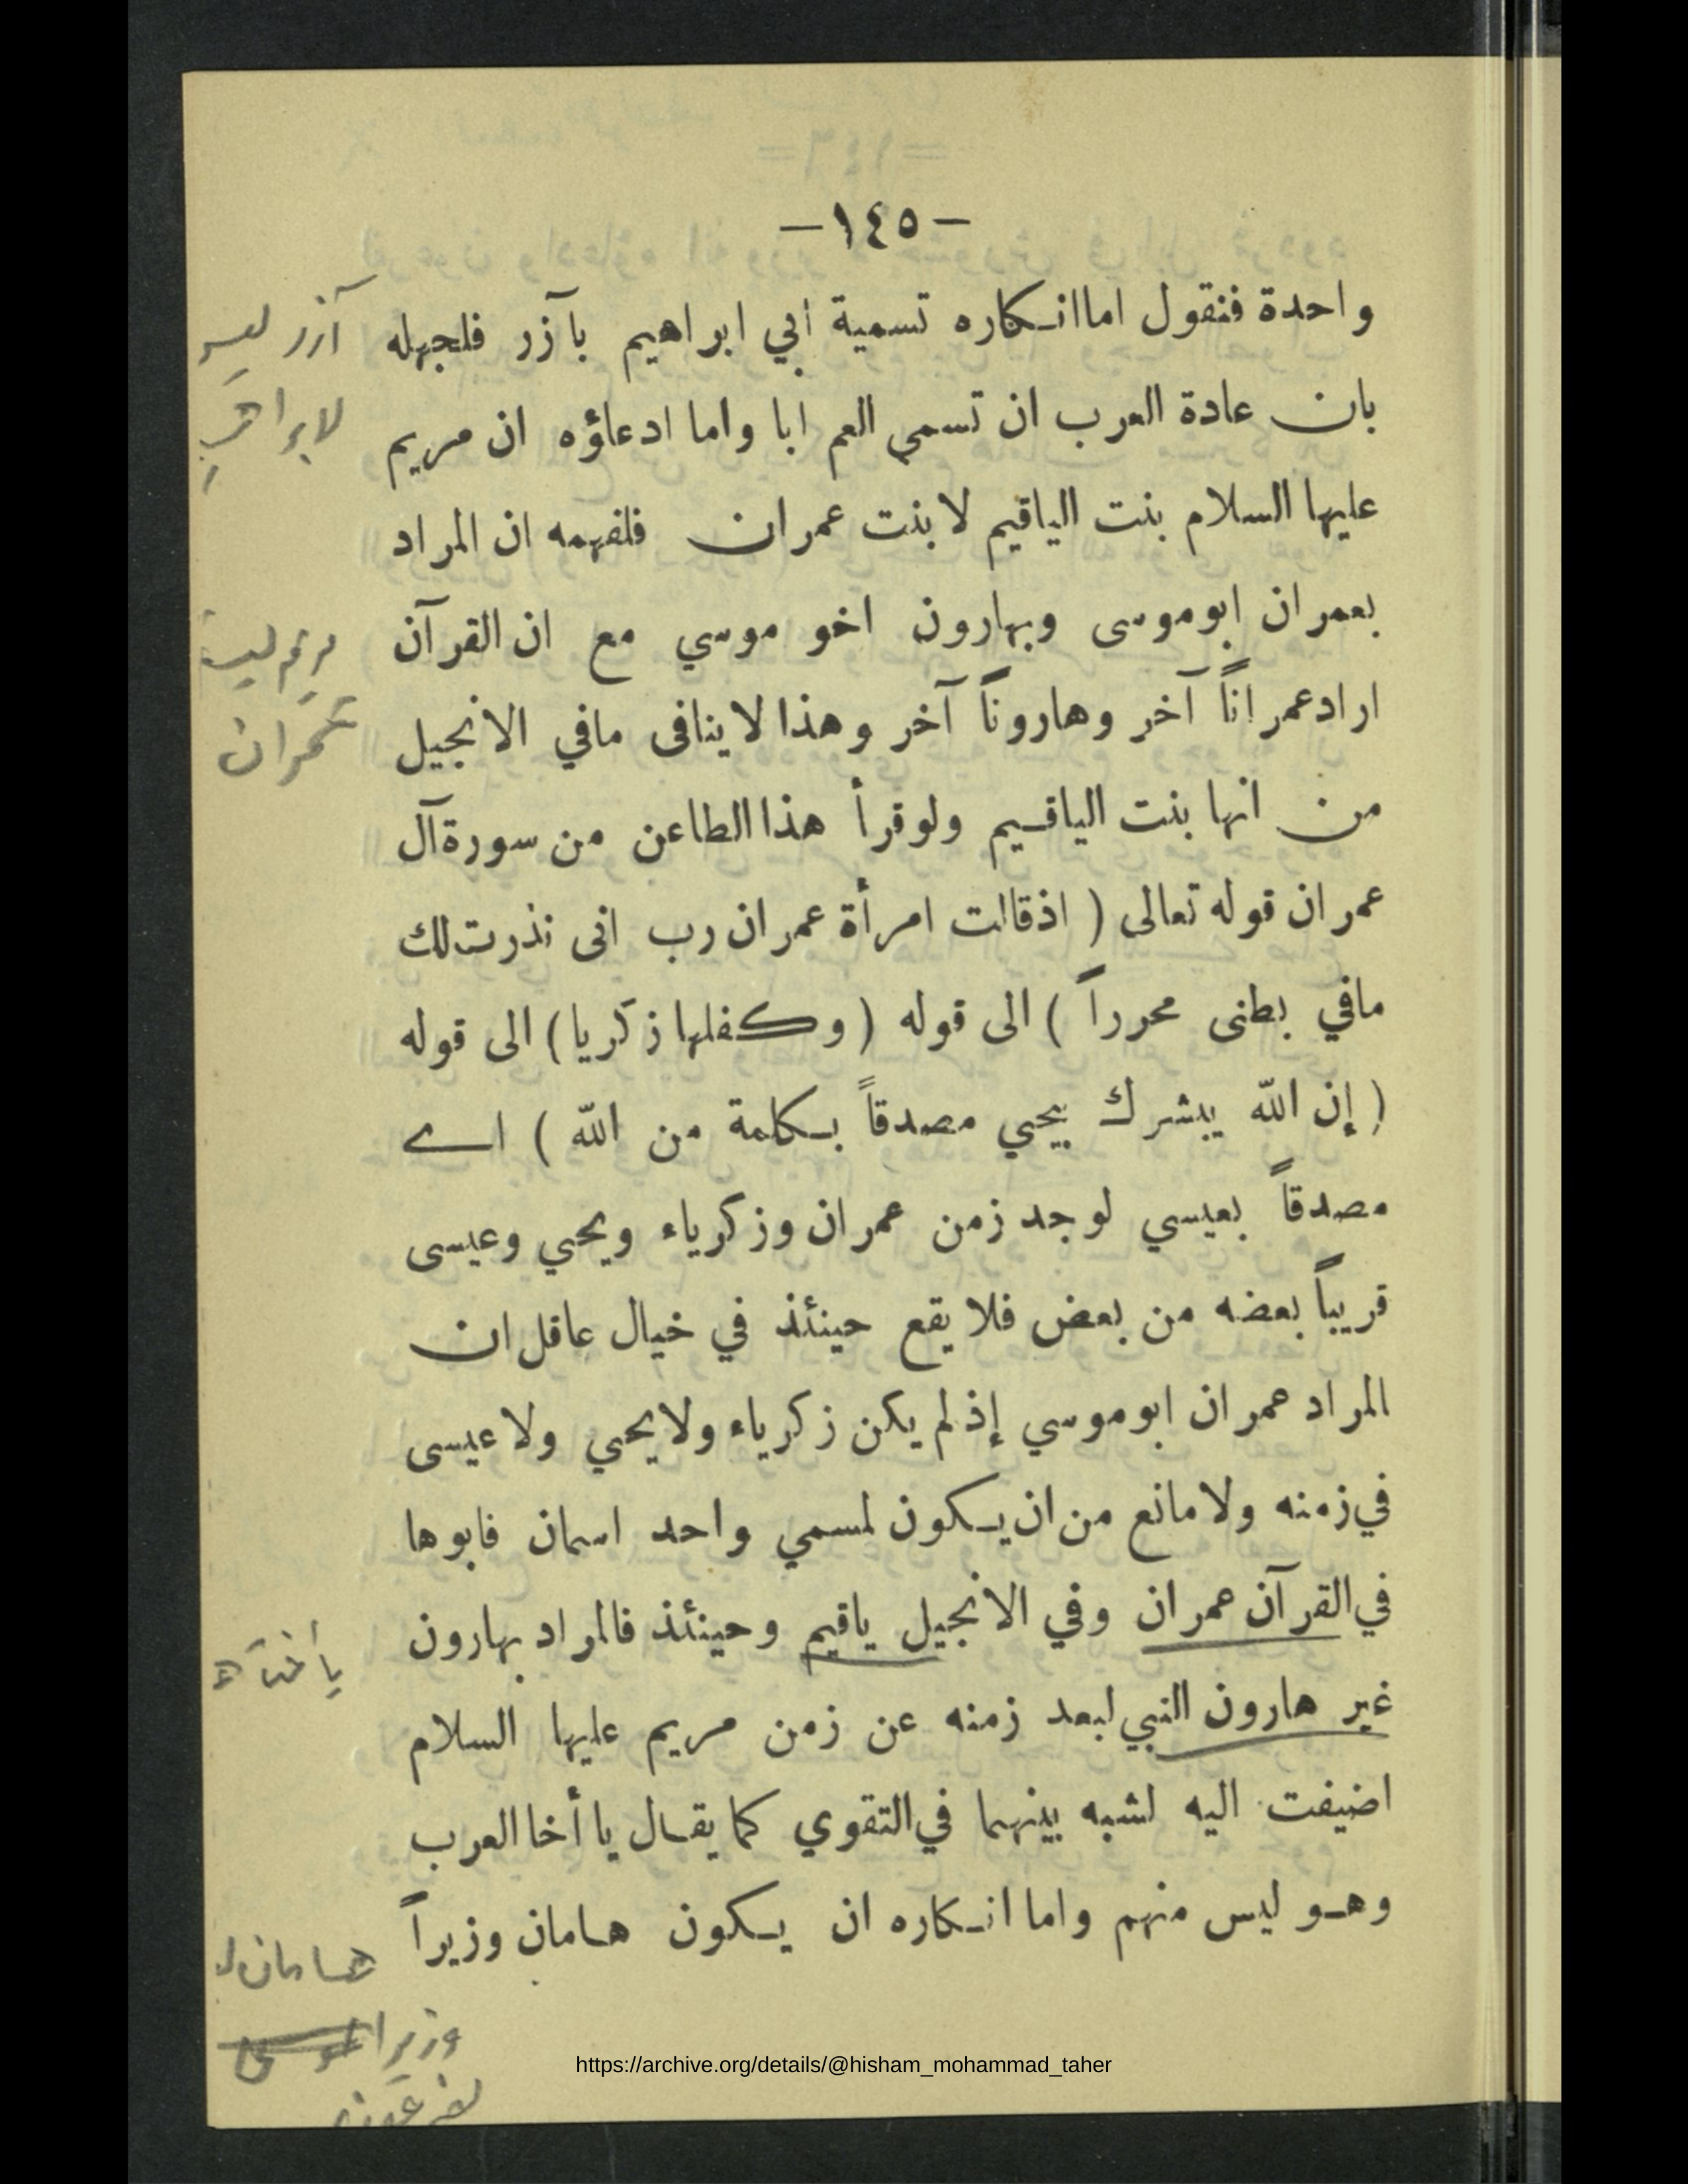 —١٤٥—
واحدة فنقول اما انكاره تسمية ابي ابراهيم بآزر فلجهله
آزر
بان عادة العرب ان تسمى العم ابا واما ادعاؤه ان مريم
عليها السلام بنت الياقيم لا بنت عمران فلفهمه ان المراد
بعمران ابوموسى وبهارون اخو موسي مع ان القرآن
مريم
ارادعمراناً آخر وهاروناً آخر وهذا لاينافى مافي الانجيل
عمران
من انها بنت الياقيم ولوقرأ هذا الطاعن من سورة آل
عمران قوله تعالى ( اذقالت امرأة عمران رب انى نذرت لك
مافي بطنى محرراً ) الى قوله ( وكفلها زكريا ) الى قوله
( إن الله يبشرك بيحيي مصدقاً بكلمة من الله ) اے
مصدقاً بعيسي لوجد زمن عمران وزكرياء ويحيي وعيسى
قريباً بعضه من بعض فلا يقع حينئذ في خيال عاقل ان
المراد عمران ابوموسي إذلم يكن زكرياء ولا يحيي ولا عيسى
في زمنه ولا مانع من ان يكون لمسمي واحد اسمان فابوها
في القرآن عمران وفي الانجيل ياقيم وحينئذ فالمراد بهارون
غير هارون النبي لبعد زمنه عن زمن مريم عليها السلام
اضيفت اليه لشبه بينهما في التقوي كما يقال يا أخا العرب
وهو ليس منهم واما انكاره ان يكون هامان وزيراً
هامان
وزيرا
https://archive.org/details/@hisham_mohammad_taher